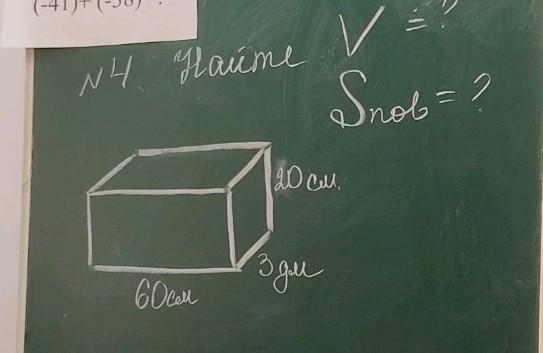 (-41)+(-58)
№4. Найти V = ?
Sпов = ?
20 см.
3 дм
60 см